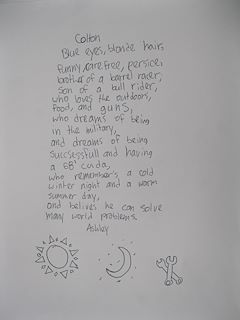 Colton
Blue eyes, blonde hair,
funny, carefree, persice,
brother of a barrel racer,
son of a bull rider,
who loves the outdoors,
food, and guns,
who dreams of being
in the military,
and dreams of being
successfull and having
a 68' cuda,
who remember's a cold
winter night and a worm
summer day,
and belives he can solve
many world problems.
Ashley